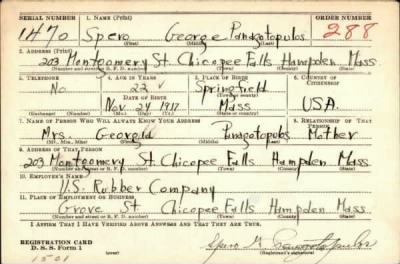 SERIAL NUMBER 1. NAME (Print) ORDER NUMBER
1470 Spero George Panagotopulos 288
(First) (Middle) (Last)
2. ADDRESS (Print)
203 Montgomery St. Chicopee Falls Hampden Mass
(Number and street or R. F. D. number) (Town) (County) (State)
3. TELEPHONE 4. AGE IN YEARS 5. PLACE OF BIRTH 6. COUNTRY OF CITIZENSHIP
No 22 Springfield
DATE OF BIRTH (Town or county)
Nov 24 1917 Mass U.S.A.
(Mo.) (Day) (Yr.) (State or country)
7. NAME OF PERSON WHO WILL ALWAYS KNOW YOUR ADDRESS 8. RELATIONSHIP OF THAT PERSON
Mrs. Georgia Panagotopulos Mother
(Mr., Mrs., Miss) (First) (Middle) (Last)
9. ADDRESS OF THAT PERSON
203 Montgomery St. Chicopee Falls Hampden Mass
(Number and street or R. F. D. number) (Town) (County) (State)
10. EMPLOYER'S NAME
U.S. Rubber Company
11. PLACE OF EMPLOYMENT OR BUSINESS
Grove St Chicopee Falls Hampden Mass
(Number and street or R. F. D. number) (Town) (County) (State)
I AFFIRM THAT I HAVE VERIFIED ABOVE ANSWERS AND THAT THEY ARE TRUE.
REGISTRATION CARD
D. S. S. Form 1 (over) Spero G. Panagotopulos
(Registrant's signature)